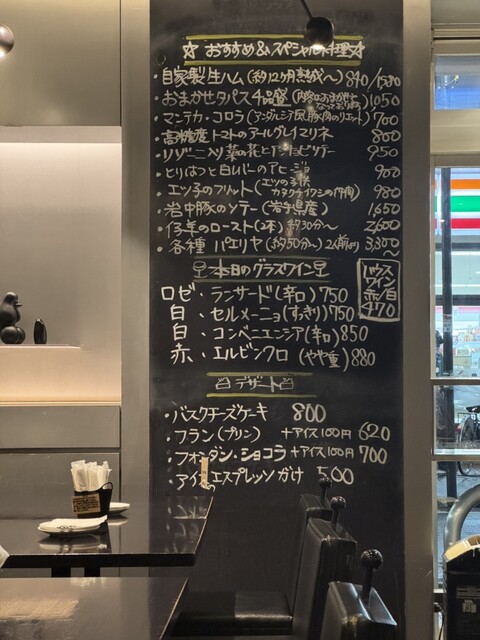 ☆ おすすめ&スペシャル料理☆
・自家製生ハム(約12ヶ月熟成〜) 840/1580
・おまかせタパス4品盛(内容はおまかせになっております) 1050
・マンテカ・コロラ(アンダルシア風豚肉のリエット) 700
・高糖度トマトのアールグレイマリネ 800
・リゾーニ入り菜の花とアンチョビソテー 950
・とりはつと白レバーのアヒージョ 900
・エツ子のフリット(エツの子供 カタクチイワシの仲間) 980
・岩中豚のソテー(岩手県産) 1,650
・仔羊のロースト(2本)約30分〜 2,600
・各種 パエリヤ(約50分〜)2人前より 3,300〜
本日のグラスワイン
ロゼ・ランサード(辛口) 750
白・セルメーニョ(すっきり) 750
白・コンベニエンシア(辛口) 850
赤・エルビンクロ (やや重) 880
ハウス
ワイン
赤/白
470
デザート
・バスクチーズケーキ 800
・フラン(プリン) +アイス100円 620
・フォンダン・ショコラ +アイス100円 700
・アイスエスプレッソがけ 500